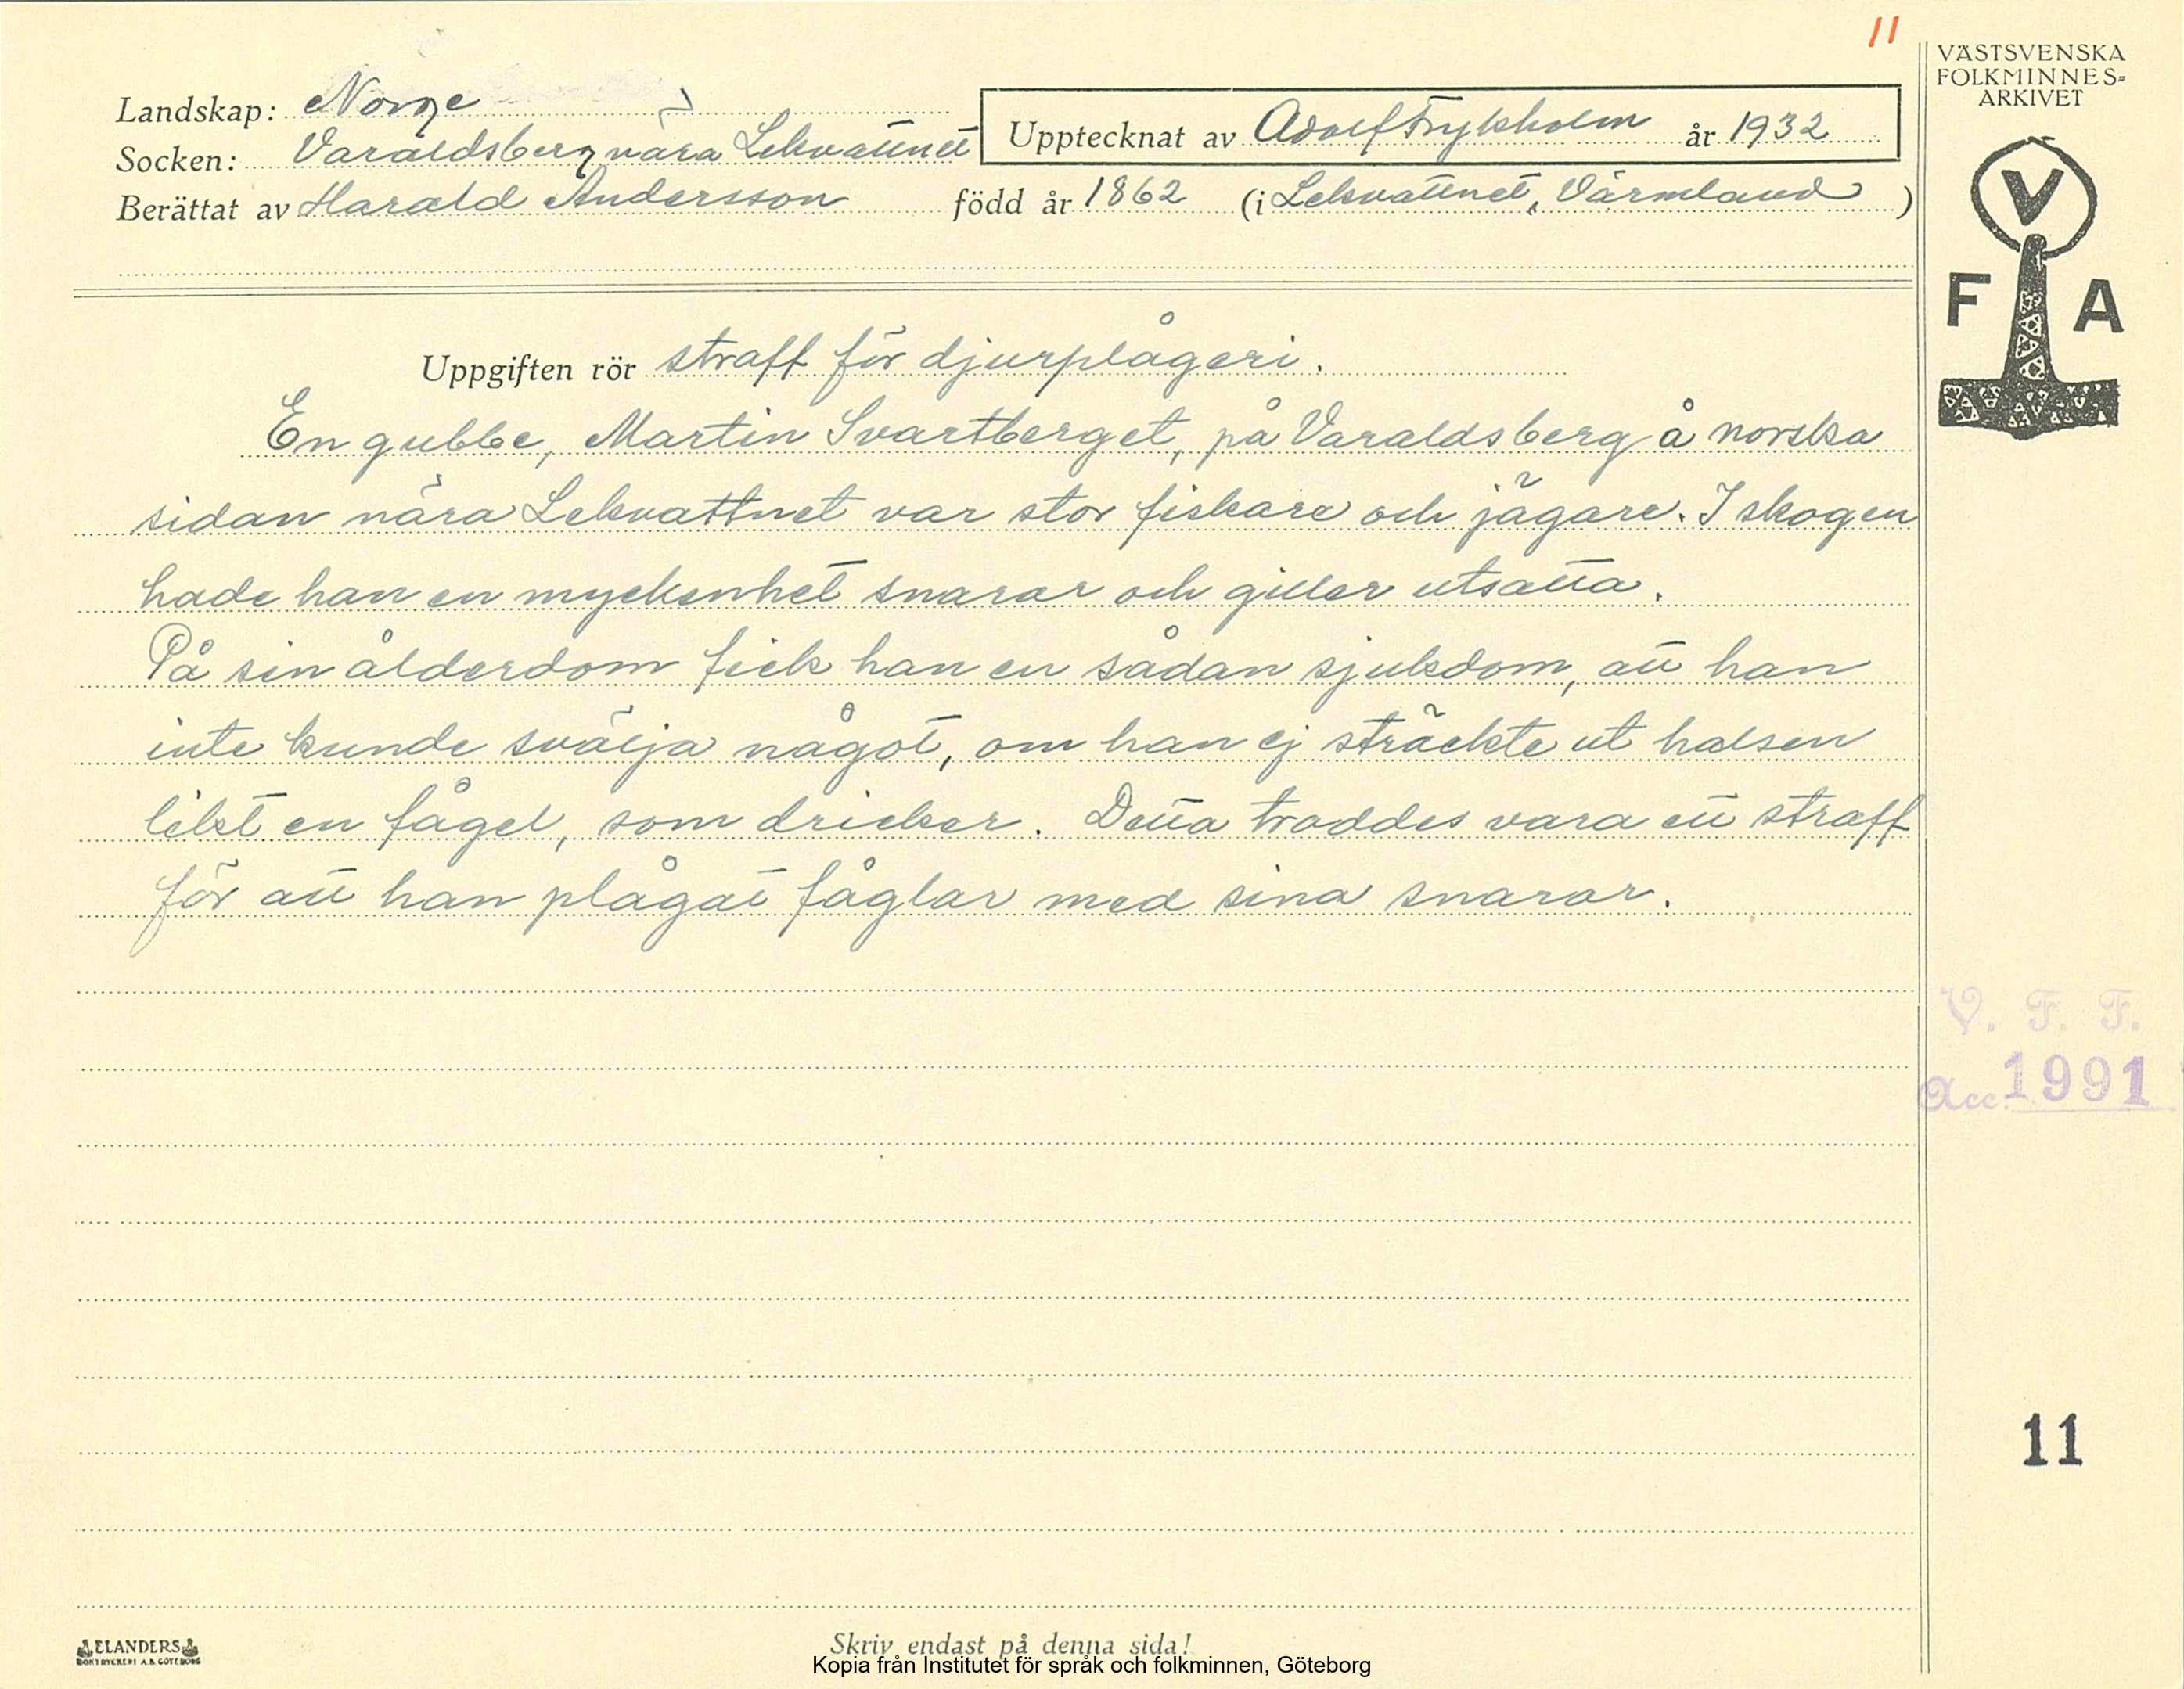 11
VÄSTSVENSKA
FOLKMINNES-
ARKIVET
Landskap: Norge
Socken: Varaldsberg nära Lekvattnet
Upptecknat av Adolf Frykholm år 1932
Berättat av Harald Andersson född år 1862 (i Lekvattnet, Värmland)
V
F A
Uppgiften rör straff för djurplågeri.
En gubbe, Martin Svartberget, på Varaldsberg å norska
sidan nära Lekvattnet var stor fiskare och jägare. I skogen
hade han en myckenhet snaror och giller utsatta.
På sin ålderdom fick han en sådan sjukdom, att han
inte kunde svälja något, om han ej sträckte ut halsen
likt en fågel, som dricker. Detta troddes vara ett straff
för att han plågat fåglar med sina snaror.
V. F. F.
Acc. 1991
11
ELANDERS
BOKTRYCKERI A.B. GÖTEBORG
Skriv endast på denna sida!
Kopia från Institutet för språk och folkminnen, Göteborg